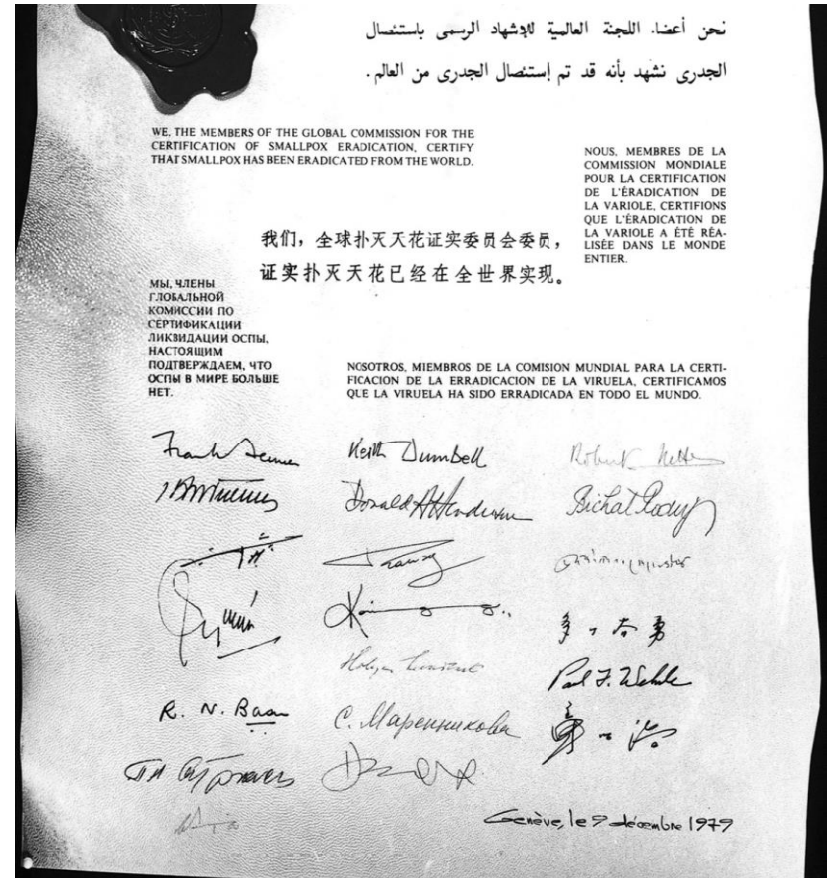 نحن أعضاء اللجنة العالمية للاشهاد الرسمى باستئصال
الجدرى نشهد بأنه قد تم إستئصال الجدرى من العالم .
WE, THE MEMBERS OF THE GLOBAL COMMISSION FOR THE
CERTIFICATION OF SMALLPOX ERADICATION, CERTIFY
THAT SMALLPOX HAS BEEN ERADICATED FROM THE WORLD.
NOUS, MEMBRES DE LA
COMMISSION MONDIALE
POUR LA CERTIFICATION
DE L'ÉRADICATION DE
LA VARIOLE, CERTIFIONS
QUE L'ÉRADICATION DE
LA VARIOLE A ÉTÉ RÉA-
LISÉE DANS LE MONDE
ENTIER.
我们，全球扑灭天花证实委员会委员，
证实扑灭天花已经在全世界实现。
МЫ, ЧЛЕНЫ
ГЛОБАЛЬНОЙ
КОМИССИИ ПО
СЕРТИФИКАЦИИ
ЛИКВИДАЦИИ ОСПЫ,
НАСТОЯЩИМ
ПОДТВЕРЖДАЕМ, ЧТО
ОСПЫ В МИРЕ БОЛЬШЕ
НЕТ.
NOSOTROS, MIEMBROS DE LA COMISION MUNDIAL PARA LA CERTI-
FICACION DE LA ERRADICACION DE LA VIRUELA, CERTIFICAMOS
QUE LA VIRUELA HA SIDO ERRADICADA EN TODO EL MUNDO.
Frank Fenner
Keith Dumbell
Robert Netter
Donald A Henderson
Paul F. Wehrle
R. N. Basu
С. Маренникова
Genève, le 9 décembre 1979